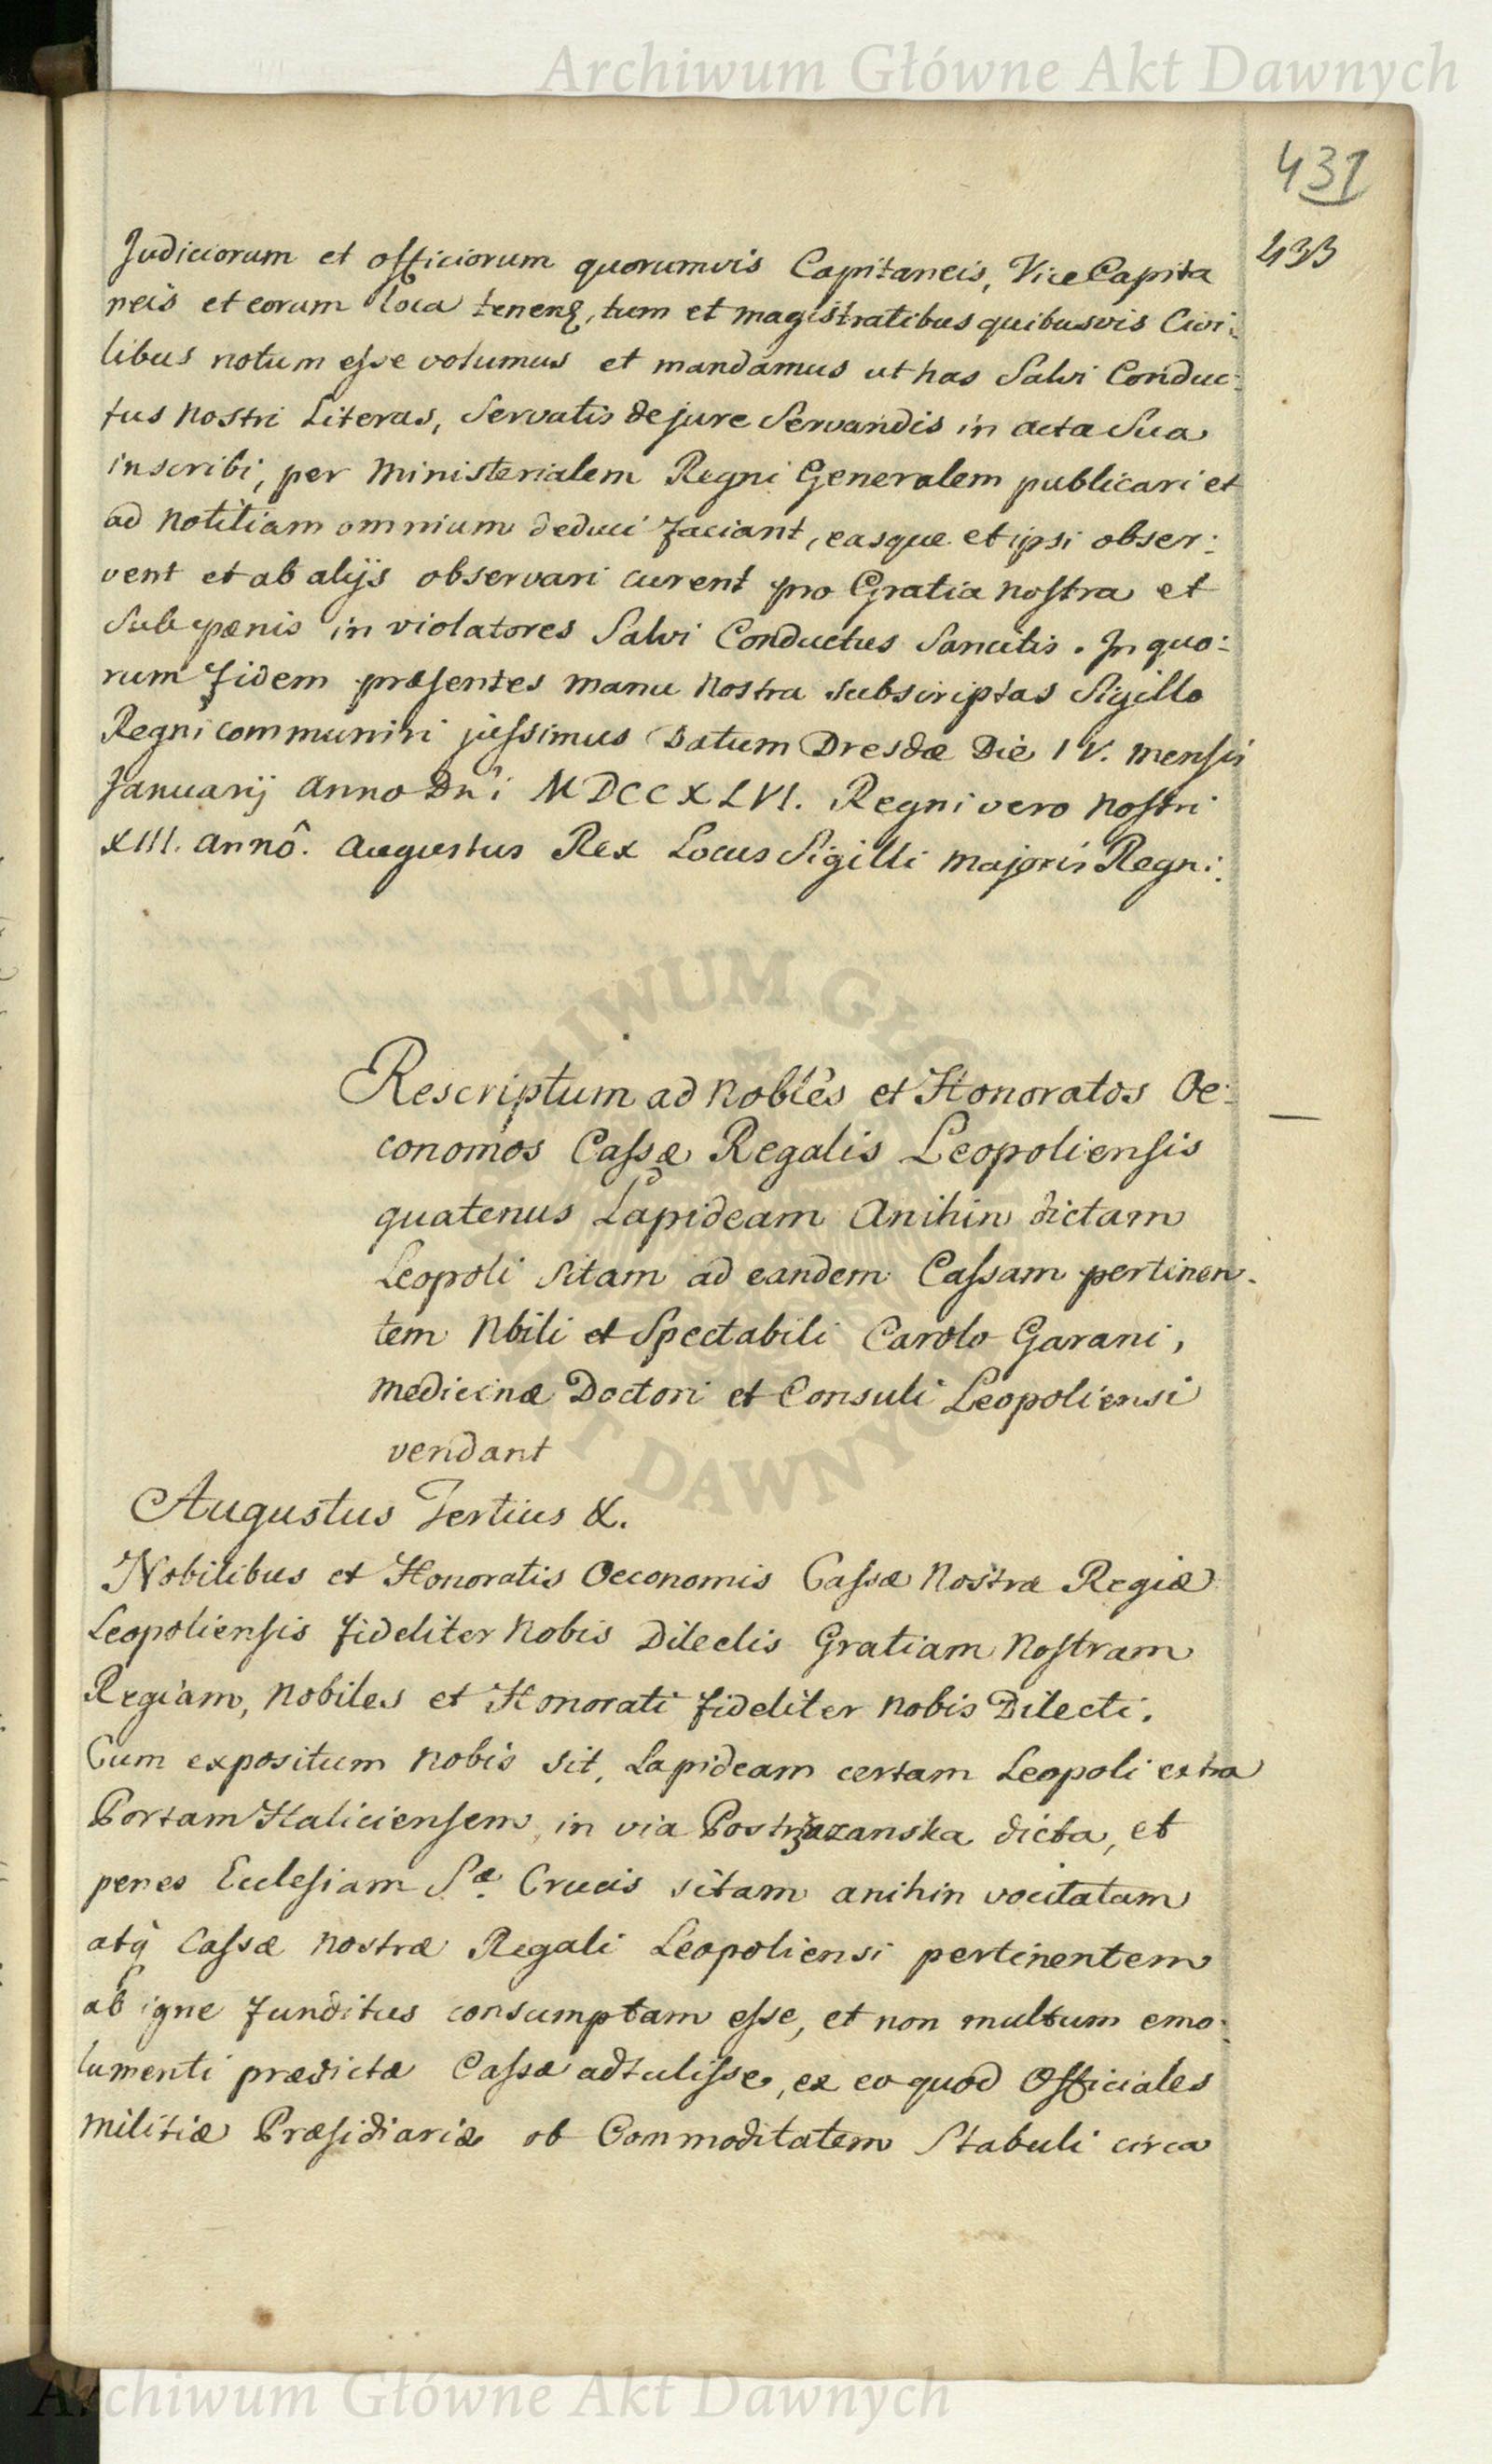 Archiwum Główne Akt Dawnych
431
433
Judiciorum et officiorum quorumvis Capitaneis, Vice Capita
neis et eorum loca tenen, tum et magistratibus quibusvis Civi:
libus notum eſse volumus et mandamus ut has Salvi Conduc:
tus nostri Literas, Servatis de jure Servandis in acta Sua
inscribi, per Ministerialem Regni Generalem publicari et
ad notitiam omnium deduci faciant, easque et ipsi obser:
vent et ab alijs observari curent pro Gratia noſtra et
Sub pænis in violatores Salvi Conductus Sancitis. In quo:
rum fidem præſentes manu nostra subscriptas Sigillo
Regni communiri juſsimus Datum Dresdæ Die IV. mensis
Januarij Anno Dni MDCCXLVI. Regni vero noſtri
XIII. annô. Augustus Rex Locus Sigilli majoris Regni.
Rescriptum ad nobles et Honoratos Oe:
conomos Caſsæ Regalis Leopolienſis
quatenus Lapideam Anihin dictam
Leopoli sitam ad eandem Caſsam pertinen-
tem Nbili et Spectabili Carolo Garani,
medicinæ Doctori et Consuli Leopoliensi
vendant
Augustus Tertius &.
Nobilibus et Honoratis Oeconomis Caſsæ Nostræ Regiæ
Leopolienſis fideliter nobis Dilectis Gratiam noſtram
Regiam, nobiles et Honorati fideliter nobis Dilecti.
Cum expositum nobis sit, Lapideam certam Leopoli extra
Portam Halicienſem, in via dicta, et
penes Eccleſiam Sæ. Crucis sitam anihin vocitatam
atq̀ Caſsæ nostræ Regali Leopoliensi pertinentem
ab igne funditus consumptam eſse, et non multum emo:
lumenti prædictæ Caſsæ adtuliſse, ex eo quod Officiales
militiæ Præſidiariæ ob Commoditatem Stabuli circa
Archiwum Główne Akt Dawnych